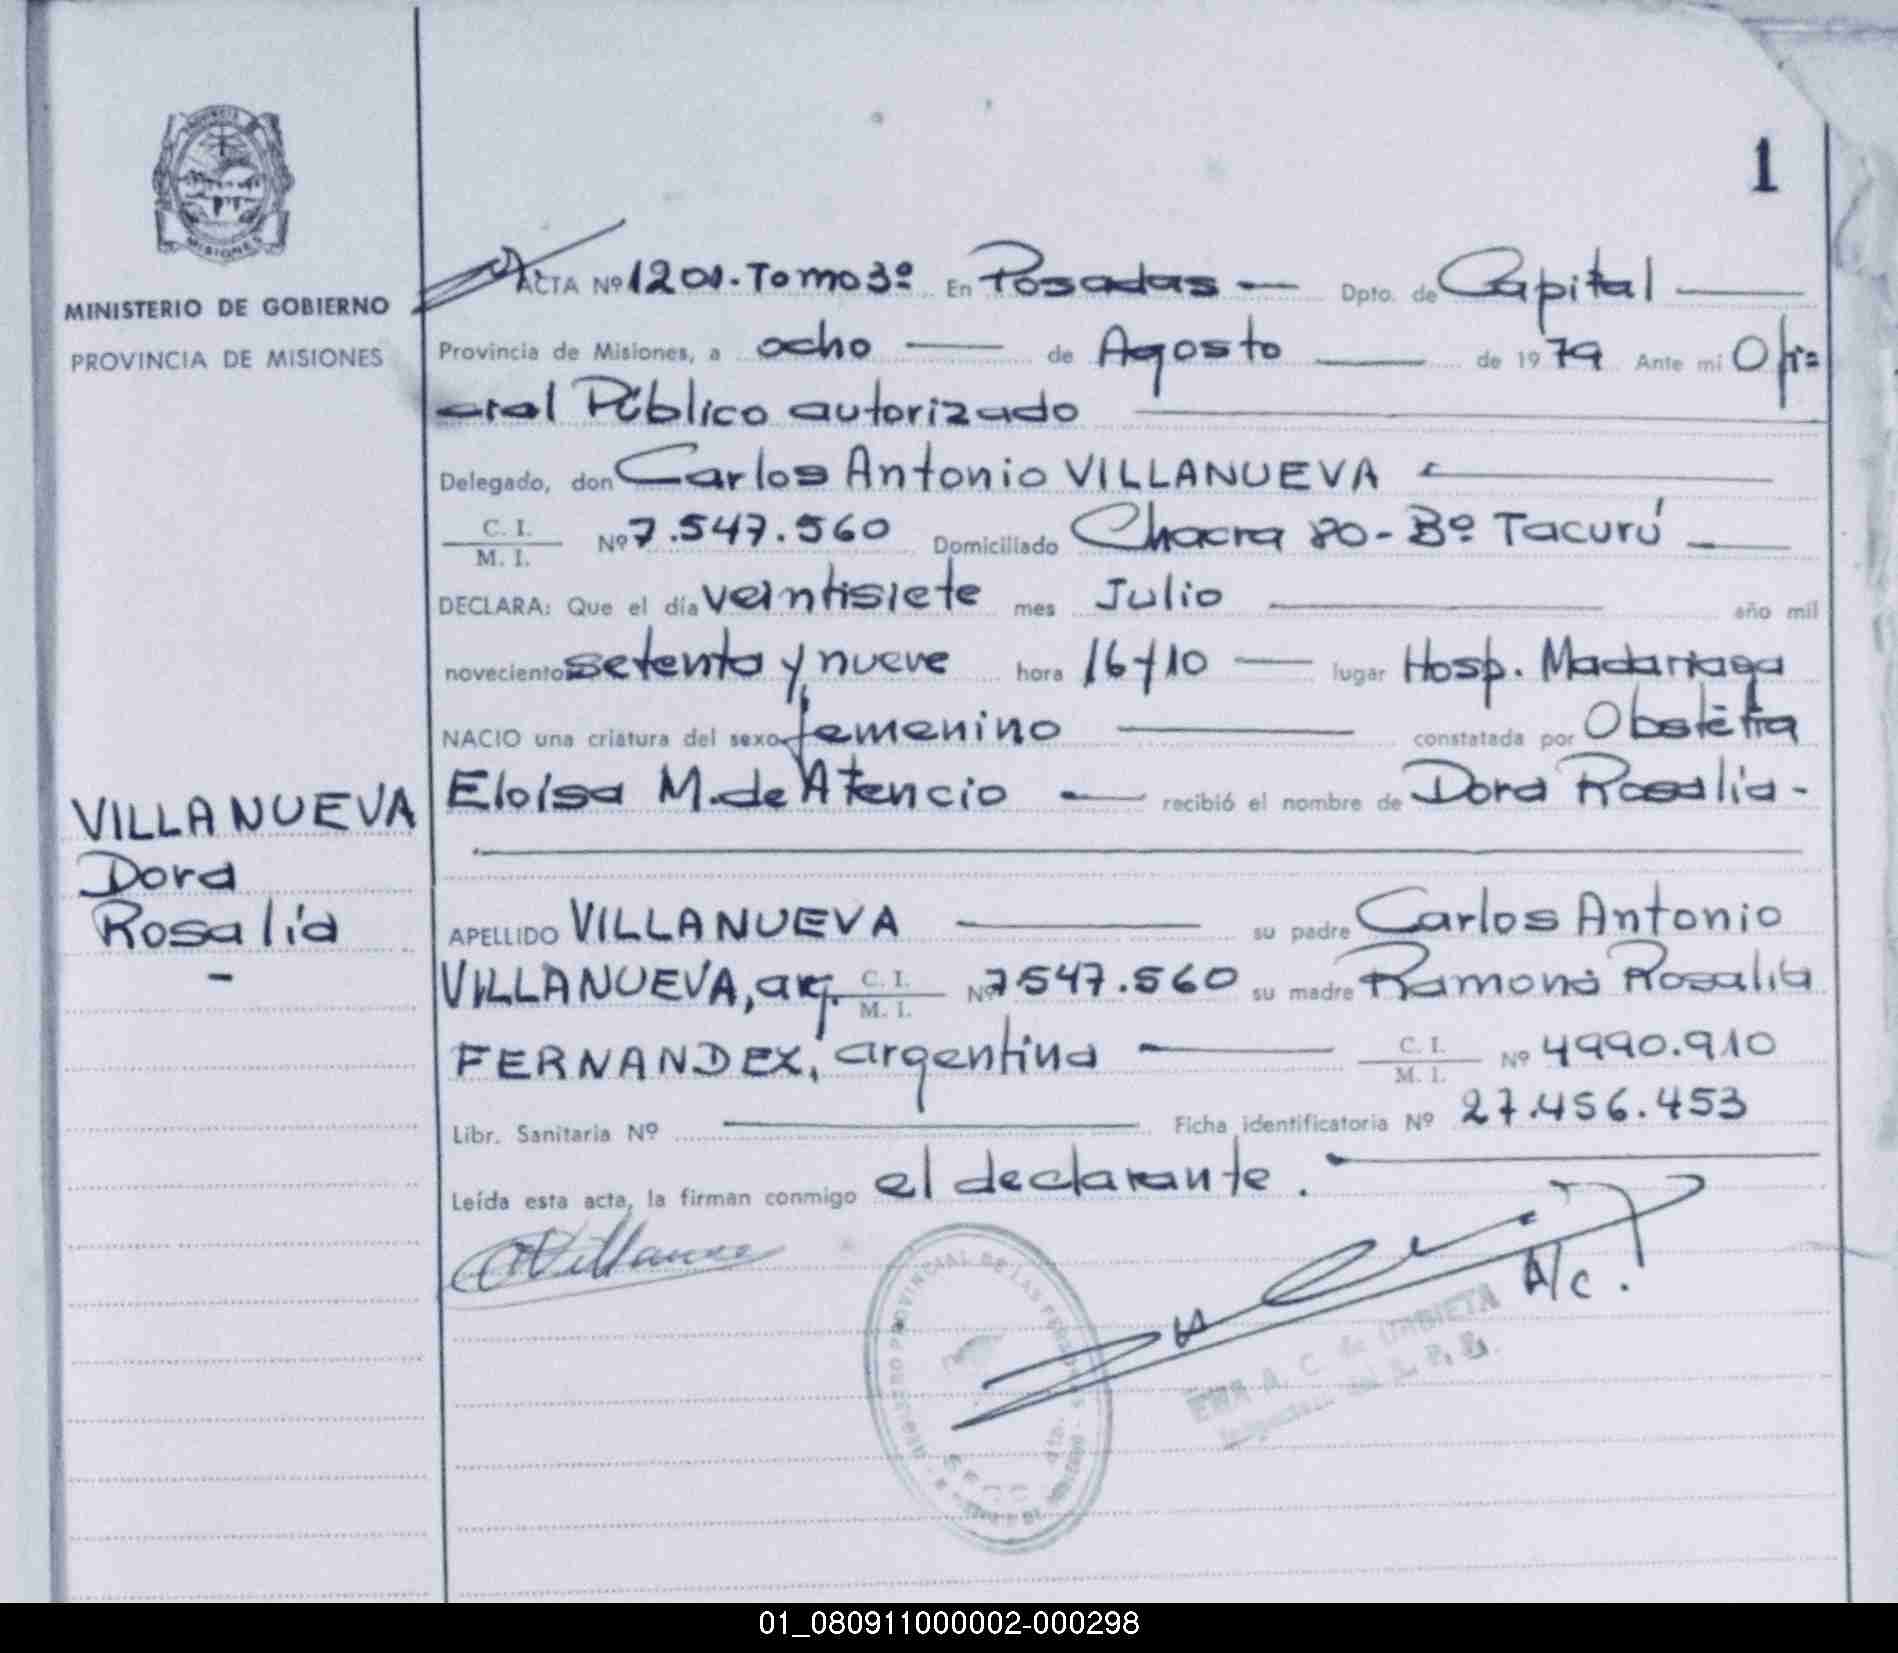 1
MINISTERIO DE GOBIERNO
PROVINCIA DE MISIONES
MISIONES
ACTA Nº 1201. Tomo 3º En Posadas — Dpto. de Capital —
Provincia de Misiones, a ocho — de Agosto — de 1979 Ante mi Ofi=
cial Público autorizado —
Delegado, don Carlos Antonio VILLANUEVA —
C. I. / M. I. Nº 7.547.560 Domiciliado Chacra 80 - Bº Tacurú —
DECLARA: Que el día veintisiete mes Julio — año mil
noveciento setenta y nueve hora 16 y 10 — lugar Hosp. Madariaga
NACIO una criatura del sexo femenino — constatada por Obstétra
Eloísa M. de Atencio — recibió el nombre de Dora Rosalía -
VILLANUEVA
Dora
Rosalía
-
APELLIDO VILLANUEVA — su padre Carlos Antonio
VILLANUEVA, arg. C. I. / M. I. Nº 7547.560 su madre Ramona Rosalia
FERNANDEZ, argentina — C. I. / M. I. Nº 4990.910
Libr. Sanitaria Nº — Ficha identificatoria Nº 27.456.453
Leída esta acta, la firman conmigo el declarante. —
A/c.
REGISTRO PROVINCIAL DE LAS PERSONAS
EMA A. C. de URBIETA
01_080911000002-000298